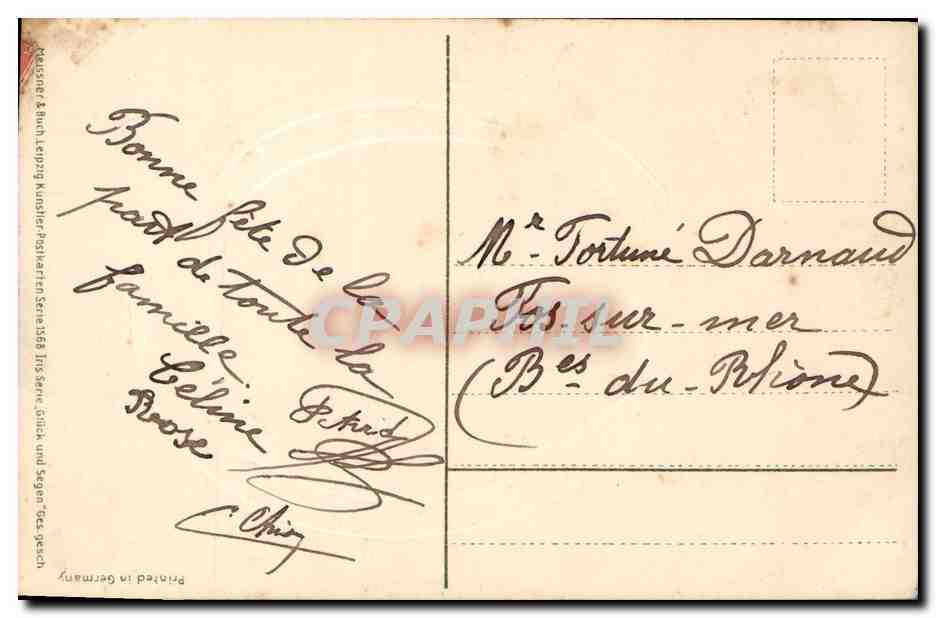 Bonne fête de la
part de toute la
famille.
Céline
Rose
Mr. Fortuné Darnaud
Fos-sur-mer
(Bes du-Rhône)
CPAPHIL
Meissner & Buch, Leipzig Künstler-Postkarten Serie 1568 Iris Serie „Glück und Segen" Ges. gesch
Printed in Germany